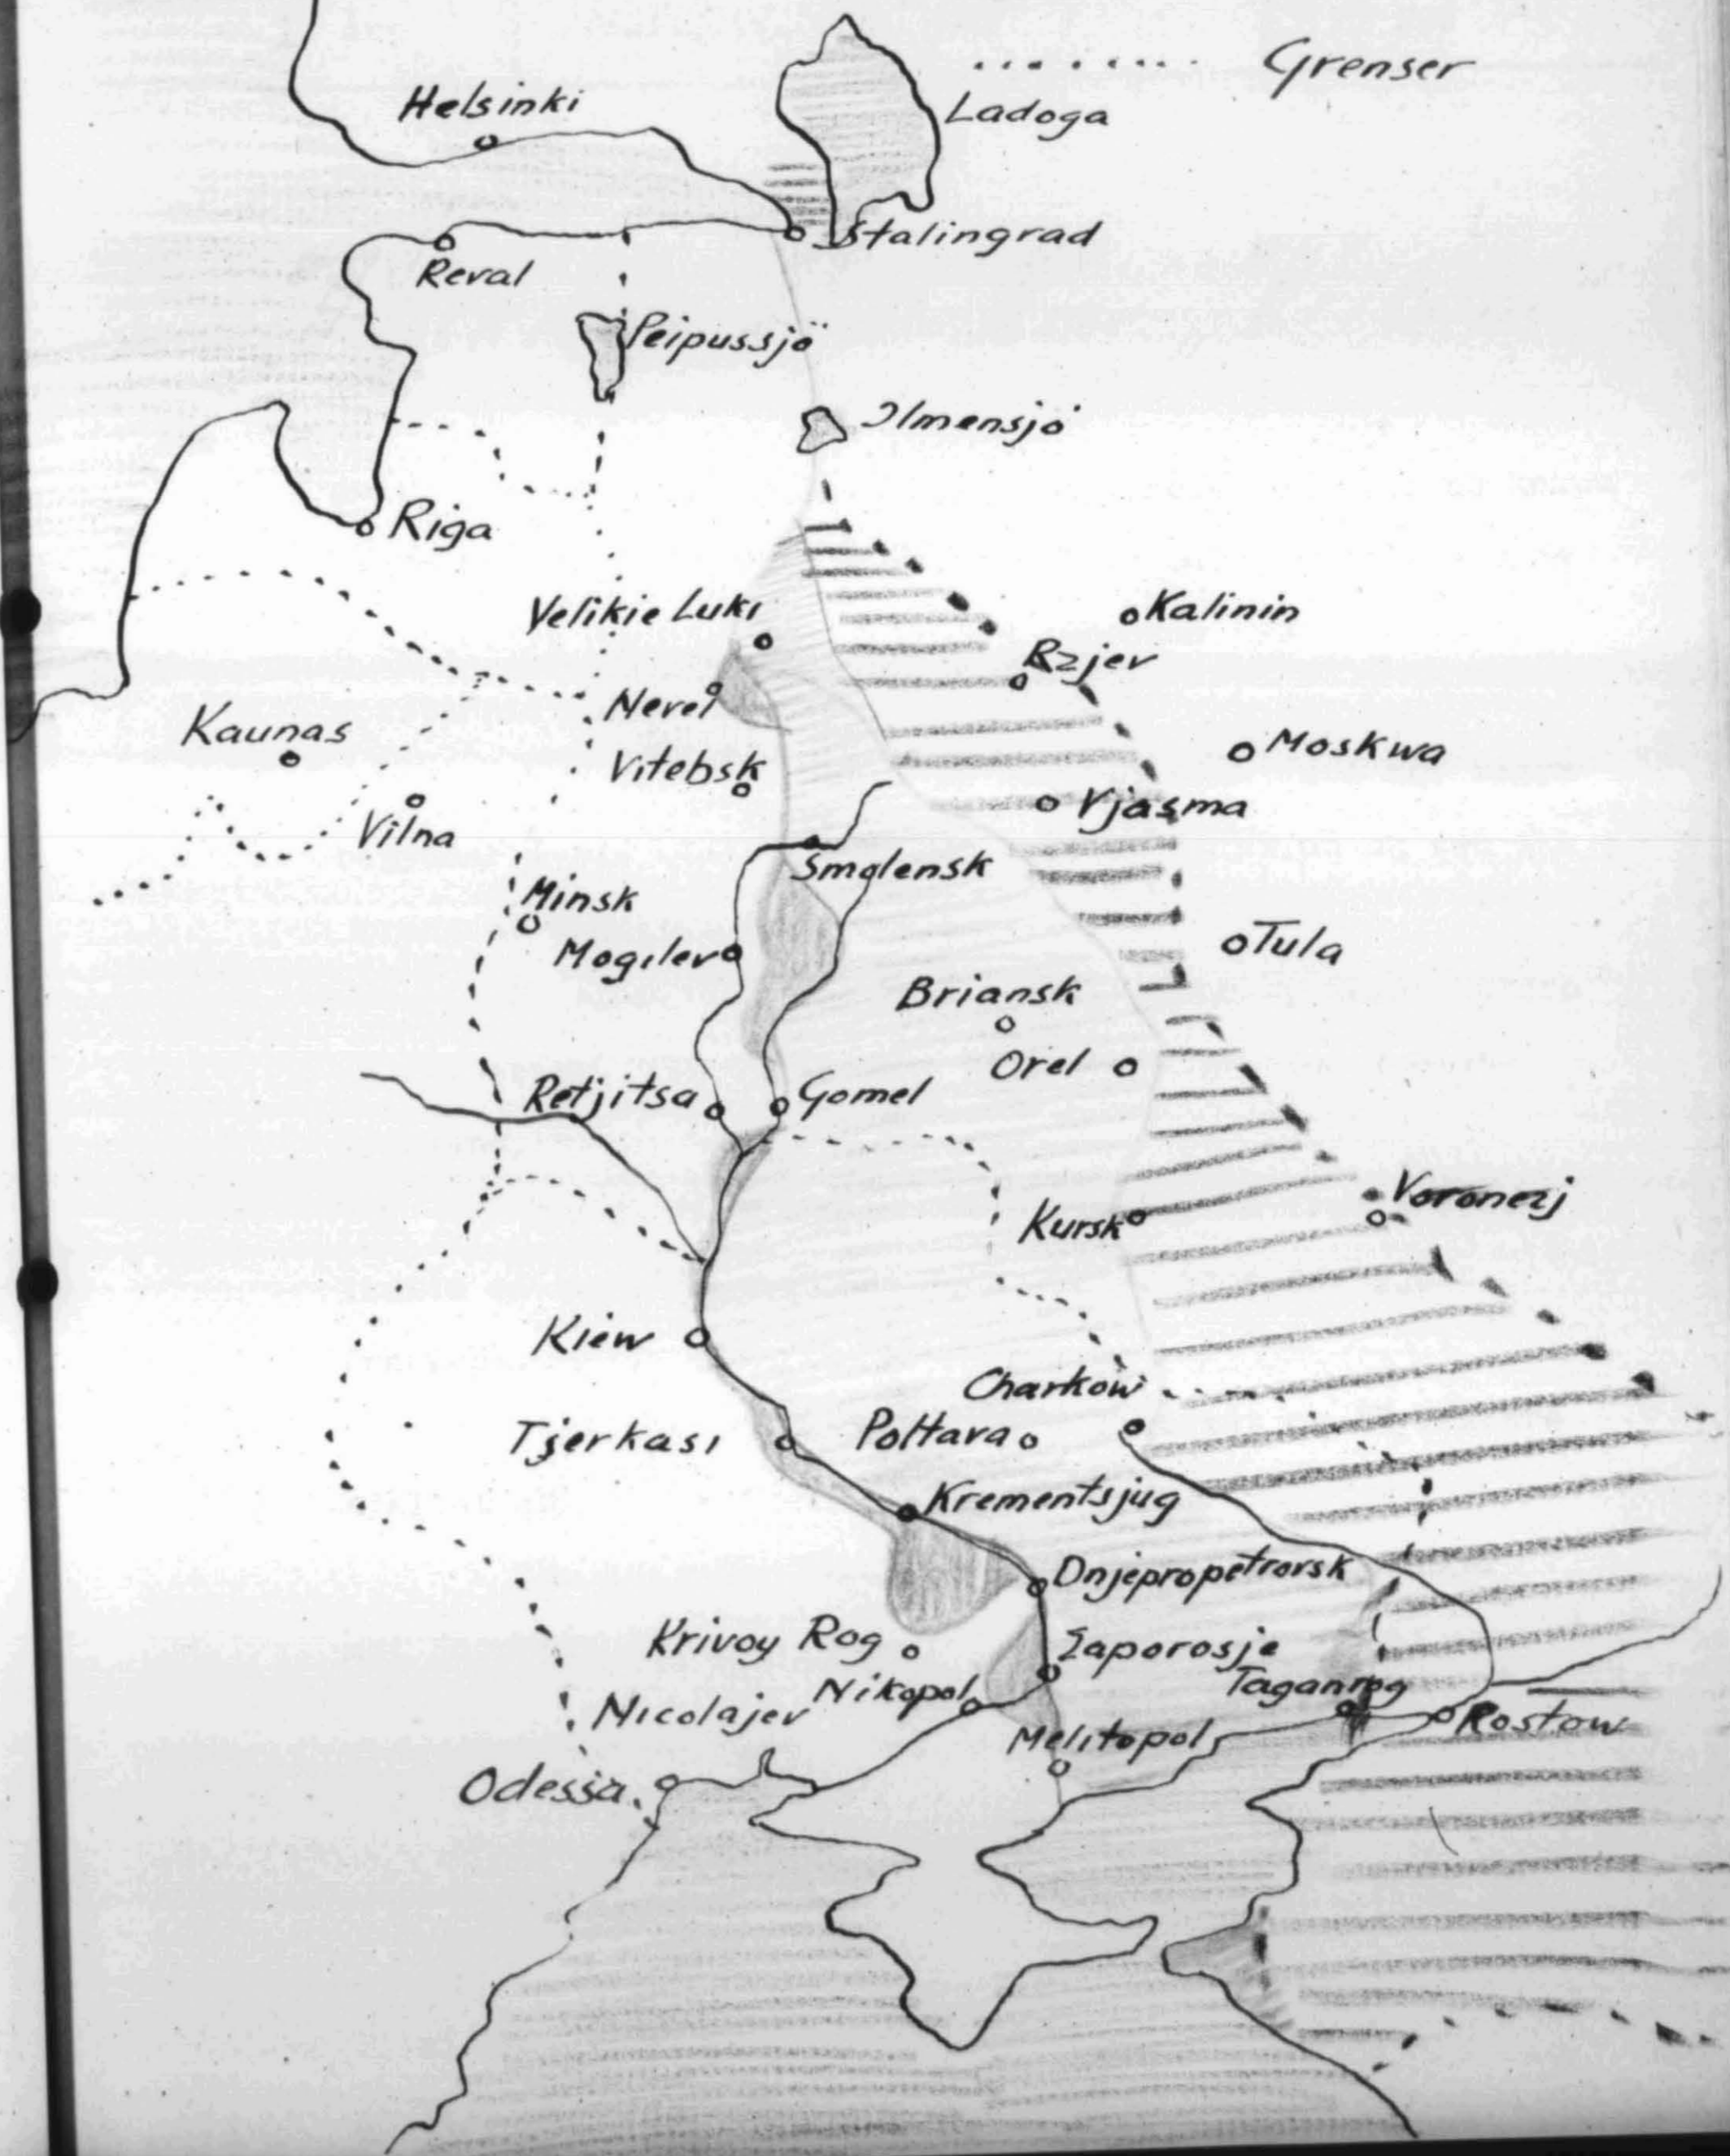 Grenser
Helsinki
Ladoga
Stalingrad
Reval
Peipussjö
Ilmensjö
Riga
Velikie Luki
Kalinin
Rzjev
Nevel
Kaunas
Moskwa
Vitebsk
Vjasma
Vilna
Smolensk
Minsk
Tula
Mogilev
Briansk
Orel
Retjitsa
Gomel
Voronezj
Kursk
Kiew
Charkow
Tjerkasi
Poltava
Krementsjug
Dnjepropetrovsk
Krivoy Rog
Saporosje
Taganrog
Nikopol
Nicolajev
Rostow
Melitopol
Odessa